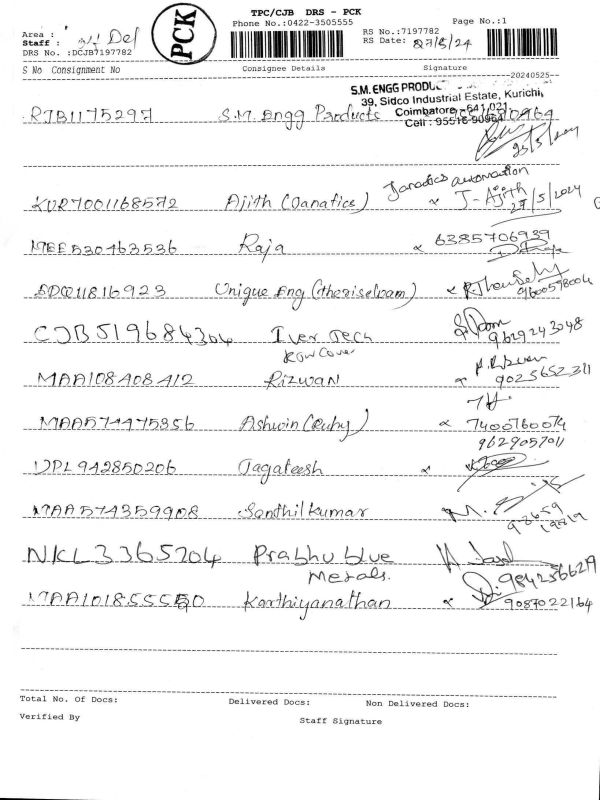 TPC/CJB DRS - PCK
Phone No.:0422-3505555
Page No.:1
PCK
Area :
Staff : Del
DRS No. :DCJB7197782
RS No.:7197782
RS Date: 27/5/24
S No Consignment No Consignee Details Signature
20240525
S.M. ENGG PRODU
39, Sidco Industrial Estate, Kurichi,
Coimbatore - 641 021
Cell : 95516 90964
RJB1175297 S.M. Engg Products
25/5/2024
Janatics automation
KUR7001168572 Ajith (Janatics) J-Ajith
27/5/2024
MEE530463536 Raja 6385706939
SDQ11816923 Unique Eng (theriselvam)
9600578004
CJB519684304 Iver Tech
Row Cover
9629243048
MAA108408412 Rizwan
9025652311
MAA574475356 Ashwin (Ruby) 7400760074
9629057011
UPL942850206 Jagateesh
MAA574359908 Senthilkumar
NKL3365204 Prabhu blue
Metals.
9842566219
MAA101855550 Karthiyanathan 9087022164
Total No. Of Docs: Delivered Docs: Non Delivered Docs:
Verified By Staff Signature